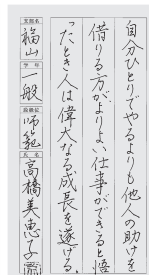 自分ひとりでやるよりも他人の助けを
借りる方がよりよい仕事ができると悟
ったとき人は偉大なる成長を遂げる。
支部名
福山
学年
一般
段級位
師範
氏名
高橋美恵子